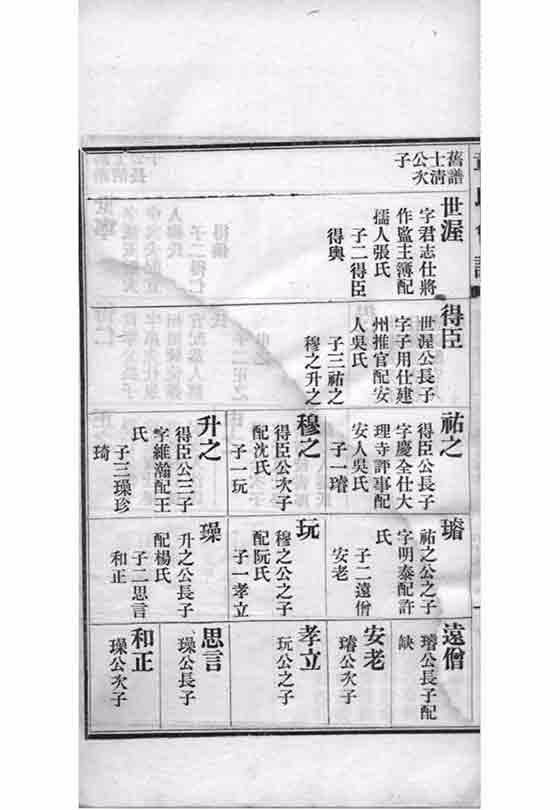 舊譜
士清
公次
子
世渥
字君志仕將
作監主簿配
孺人張氏
子二得臣
得輿
得臣
世渥公長子
字子用仕建
州推官配安
人吳氏
子三祐之
穆之升之
祐之
得臣公長子
字慶全仕大
理寺評事配
安人吳氏
子一璿
穆之
得臣公次子
配沈氏
子一玩
升之
得臣公三子
字維瀚配王
氏
子三璪珍
琦
璿
祐之公之子
字明泰配許
氏
子二遠僧
安老
玩
穆之公之子
配阮氏
子一孝立
璪
升之公長子
配楊氏
子二思言
和正
遠僧
璿公長子配
缺
安老
璿公次子
孝立
玩公之子
思言
璪公長子
和正
璪公次子